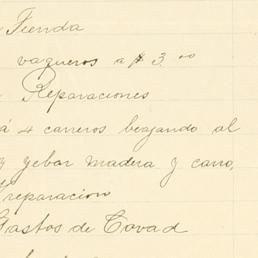 Tienda
vaqueros a $ 3.00
Reparaciones
á 4 carreros beajando al
y yebar madera y carro,
reparacion
Gastos de Covad